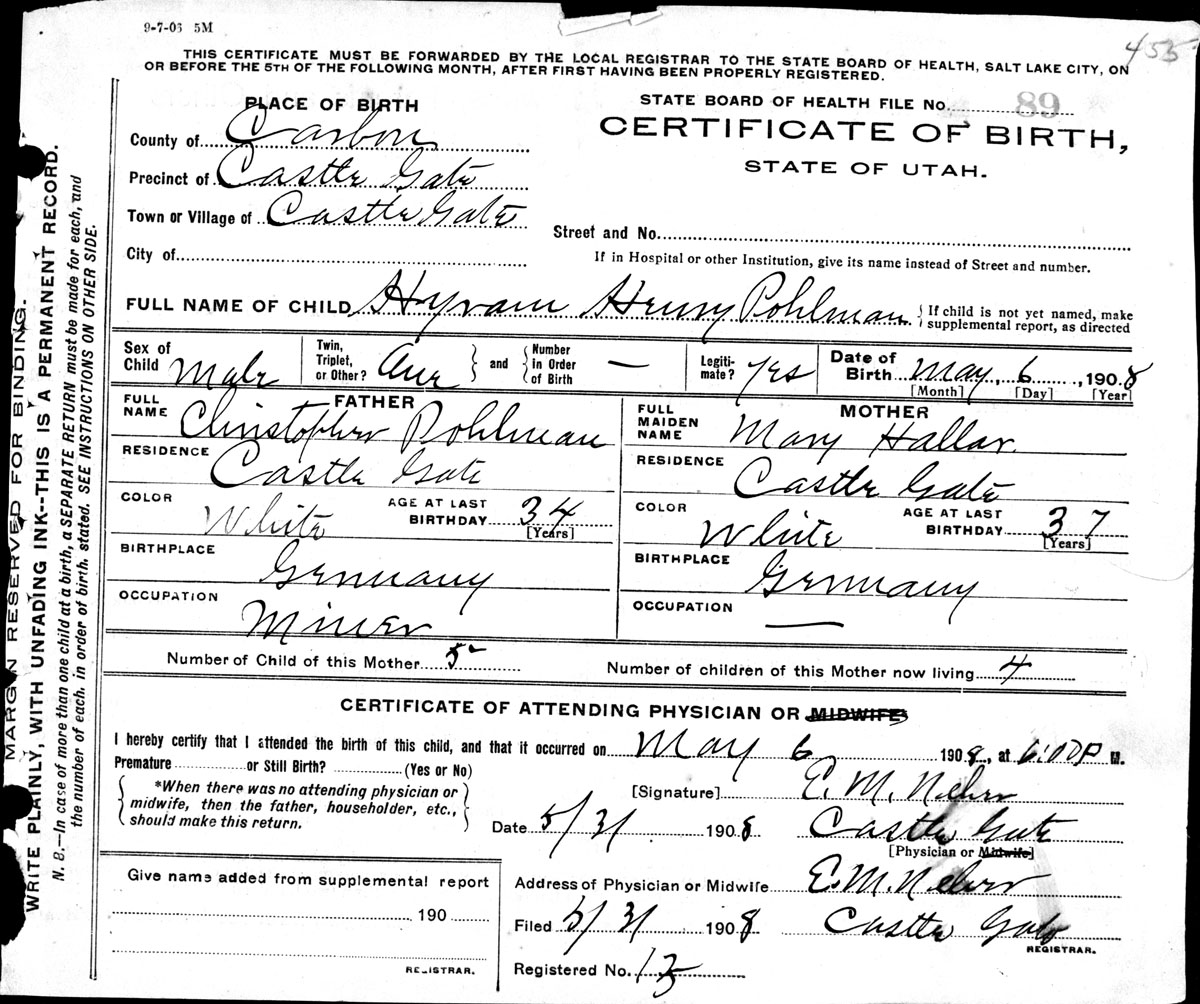 9-7-06 5M
455
THIS CERTIFICATE MUST BE FORWARDED BY THE LOCAL REGISTRAR TO THE STATE BOARD OF HEALTH, SALT LAKE CITY, ON
OR BEFORE THE 5TH OF THE FOLLOWING MONTH, AFTER FIRST HAVING BEEN PROPERLY REGISTERED.
PLACE OF BIRTH
STATE BOARD OF HEALTH FILE No. 89
County of Carbon
CERTIFICATE OF BIRTH,
Precinct of Castle Gate
STATE OF UTAH.
Town or Village of Castle Gate
Street and No.
City of
If in Hospital or other Institution, give its name instead of Street and number.
FULL NAME OF CHILD Hyram Henry Pohlman { If child is not yet named, make
supplemental report, as directed
Sex of Child Male Twin, Triplet, or Other? One } and { Number in Order of Birth — Legiti-mate? Yes Date of Birth May, 6, 1908
[Month] [Day] [Year]
FATHER
FULL NAME Christopher Pohlman
RESIDENCE Castle Gate
COLOR White AGE AT LAST BIRTHDAY 34
[Years]
BIRTHPLACE Germany
OCCUPATION Miner
MOTHER
FULL MAIDEN NAME Mary Hallar
RESIDENCE Castle Gate
COLOR White AGE AT LAST BIRTHDAY 37
[Years]
BIRTHPLACE Germany
OCCUPATION —
Number of Child of this Mother 5 Number of children of this Mother now living 4
CERTIFICATE OF ATTENDING PHYSICIAN OR MIDWIFE
I hereby certify that I attended the birth of this child, and that it occurred on May 6 1908, at 6:00 P M.
Premature or Still Birth? (Yes or No)
{ *When there was no attending physician or
midwife, then the father, householder, etc.,
should make this return. }
[Signature] E. M. Neher
Date 5/31 1908 Castle Gate
[Physician or Midwife]
Give name added from supplemental report
190
REGISTRAR.
Address of Physician or Midwife E. M. Neher
Filed 5/31 1908 Castle Gate
REGISTRAR.
Registered No. 13
MARGIN RESERVED FOR BINDING.
WRITE PLAINLY, WITH UNFADING INK--THIS IS A PERMANENT RECORD.
N. B.—In case of more than one child at a birth, a SEPARATE RETURN must be made for each, and
the number of each, in order of birth, stated. SEE INSTRUCTIONS ON OTHER SIDE.